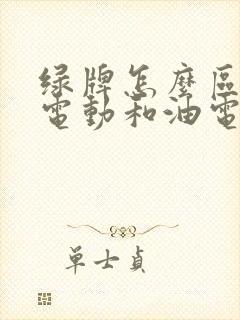 绿牌怎麼區
電動和油電
單士貞